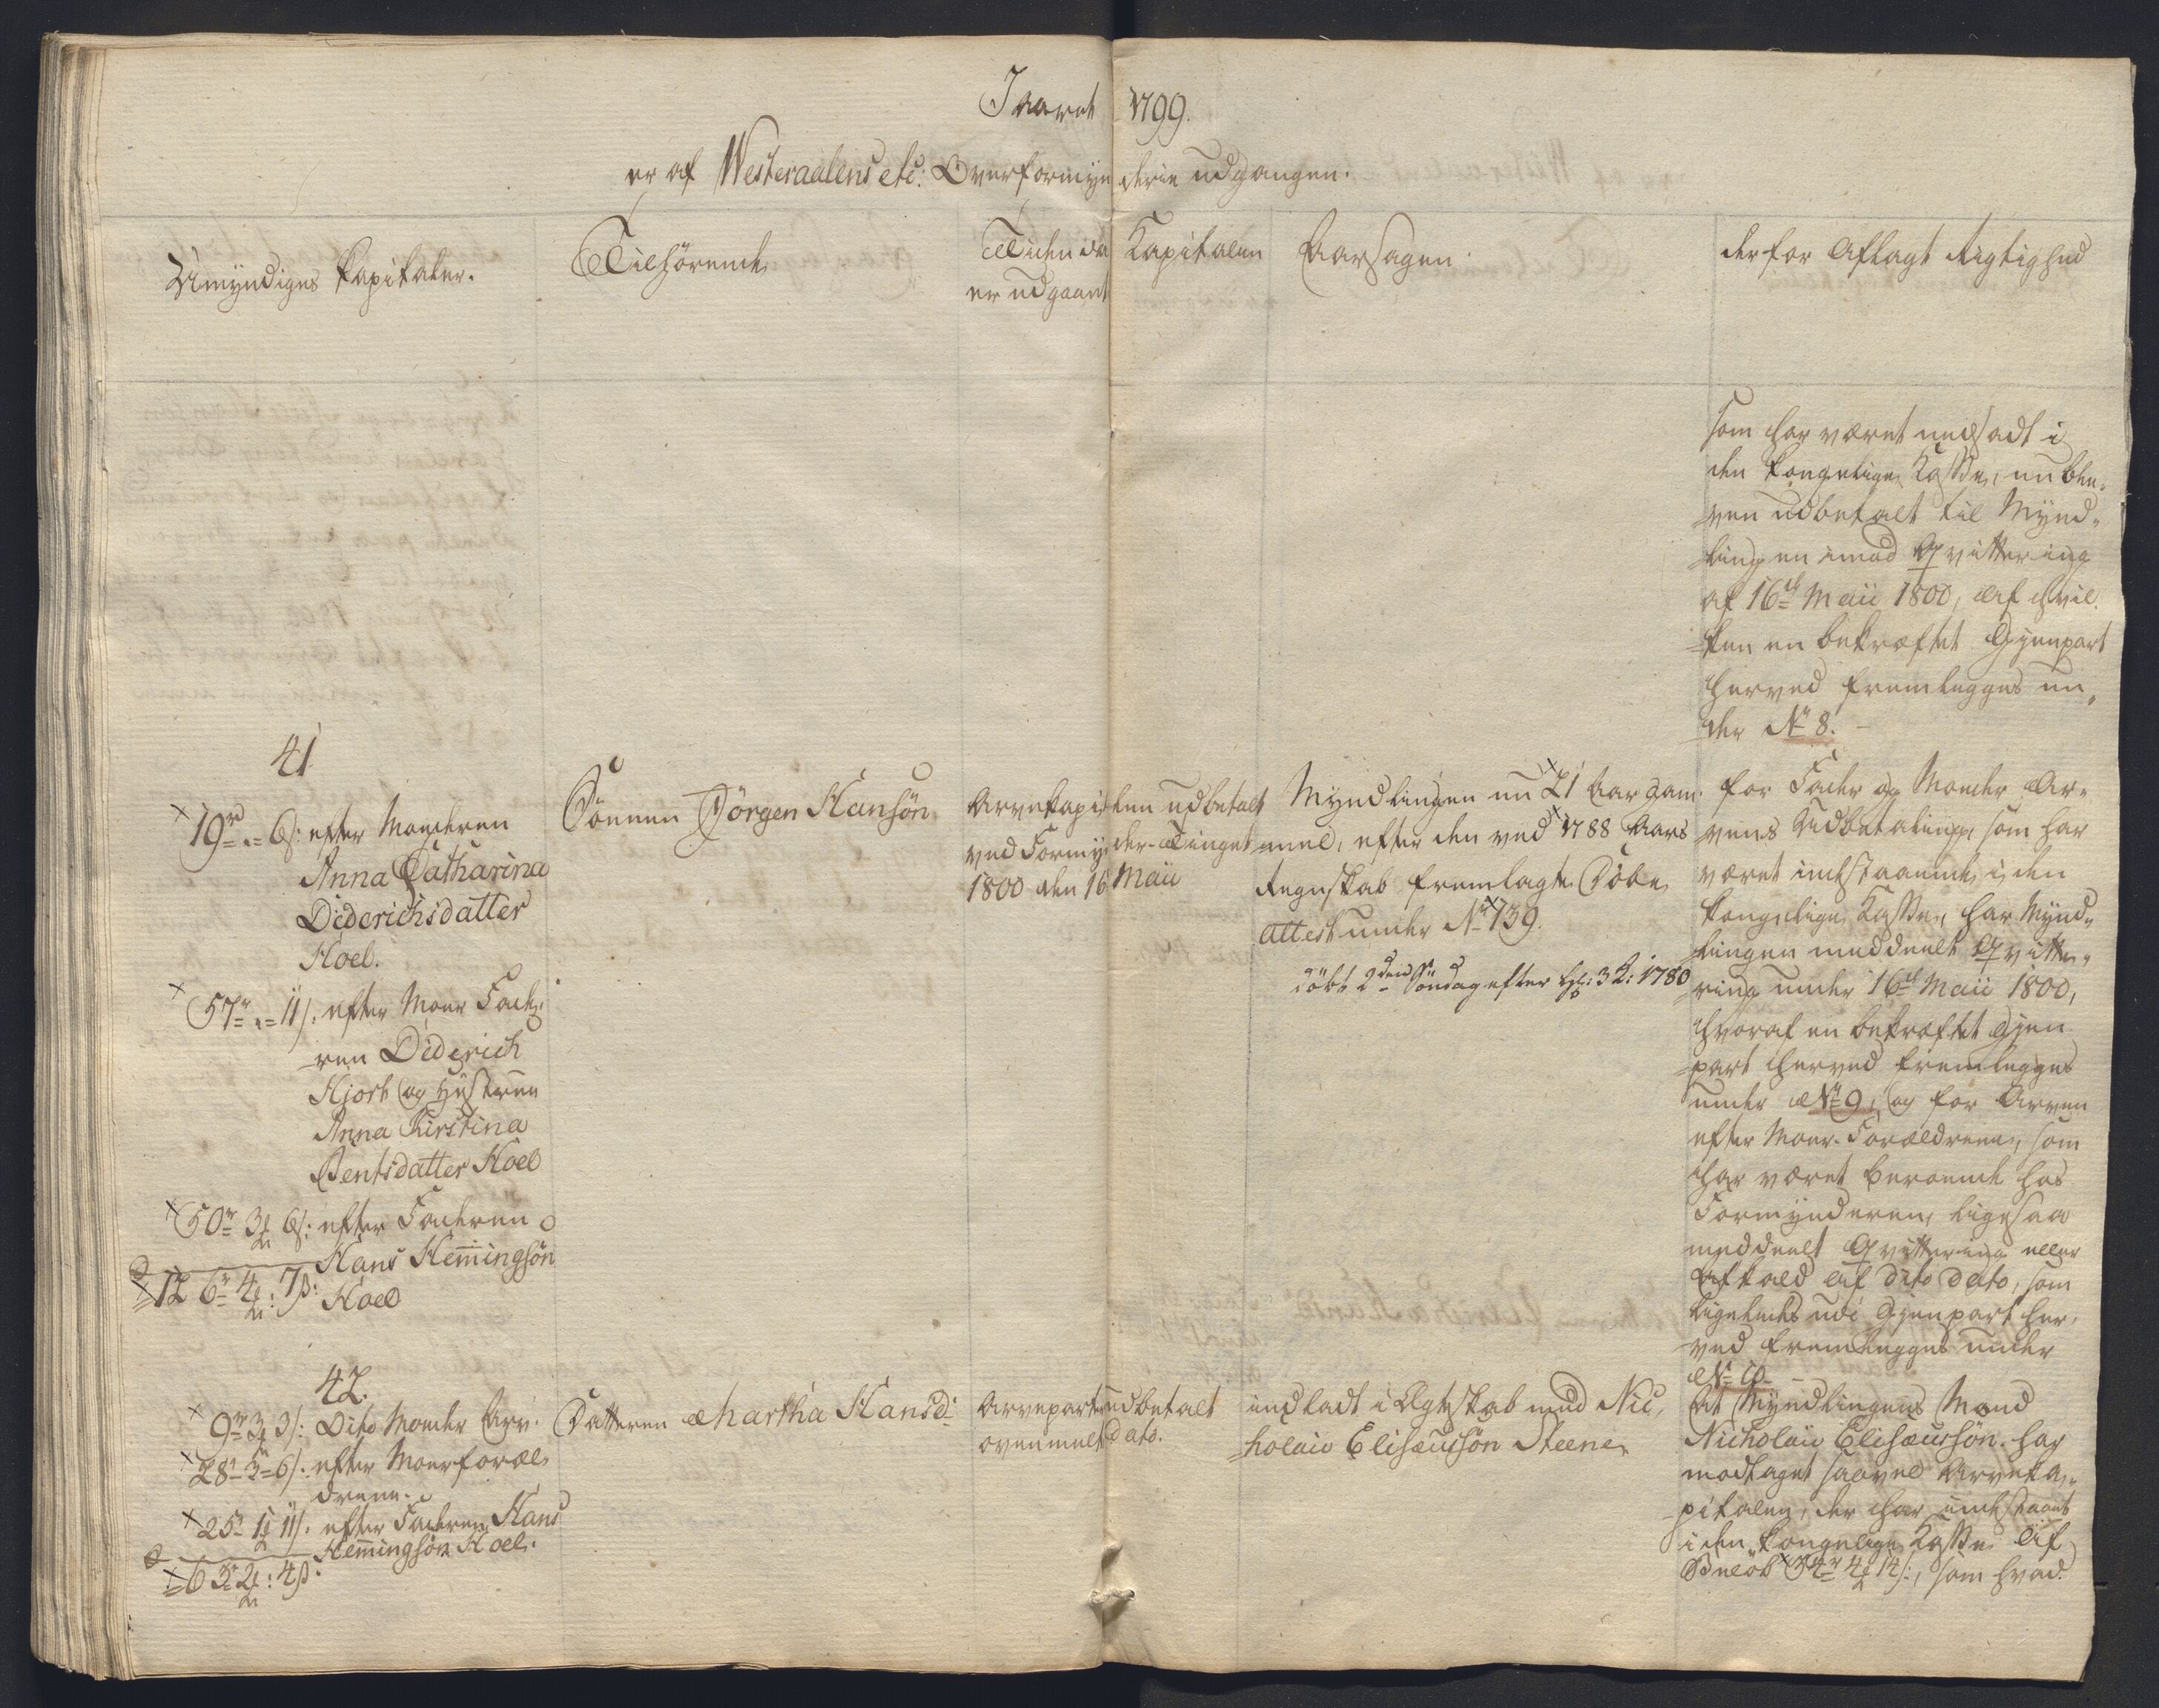 I aaret 1799.
er af Westeraalens etc: Overformynderie udgangen.
Umyndiges Kapitaler.
Tilhørende
Tiden da Kapitalen
er udgaaet
Aarsagen
derfor Aflagt Rigtighed
som har været nedsadt i
den kongelige Kasse, nu ble-
ven udbetalt til Mynd-
lingen imod Qvittering
af 16de Maii 1800, Af hvil-
ken en bekræftet Gjenpart
herved fremlegges un-
der No 8. -
41
19rd " 6s: efter Moderen
Anna Catharina
Diderichsdatter
Hoel.
57r " 11s: efter Moer Fade-
ren Diderich
Hjort og Hustruen
Anna Kirstina
Bentsdatter Hoel
50r 3 6s: efter Faderen
Hans Hemingsön
126r 4: 7s: Hoel
Sönnen Jörgen Hansön
Arvekapitalen udbetalt
ved Formynder-Tinget
1800 den 16 Maii
Myndlingen nu 21 Aar gam-
mel, efter den ved 1788 Aars
Regnskab fremlagte Døbe
attest under No 139.
döbt 2den Söndag efter hel: 3 K: 1780
for Fader og Moder Ar-
vens Udbetaling, som har
været indestaaende i den
kongelige Kasse, har Mynd-
lingen meddeelt Qvitte-
ring under 16de Maii 1800,
hvoraf en bekræftet Gjen
part herved fremlegges
under No 9, og for Arven
efter Moer-Forældrene, som
har været beroende hos
Formynderen, ligesaa
meddeelt Qvittering eller
Afkald af dito dato, som
ligeledes udi Gjenpart her-
ved fremlegges under
No 10 -
42.
9r 3 3s: Dito Moder Arv.
28r 3 6s: efter Moerforæl-
drene.
25r 1 11s: efter Faderen Hans
Hemingsön Hoel.
63r 2: 4s:
Datteren Martha Hansd:
Arvepart udbetalt
ovenmelt dato.
indladt i Ægteskab med Nic-
holaie Elisæussön Steene
At Myndlingens Mand
Nicholaie Elisæussön har
modtaget saavel Arveka-
pitalen, der har indestaaet
i den kongelige Kasse Af
Beløb 34r 4 14s:, som hvad